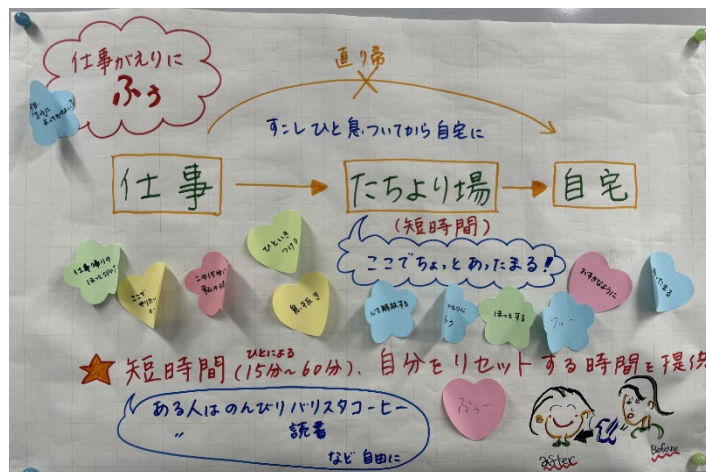 仕事がえりに
ふぅ
直り帰
すこしひと息ついてから自宅に
仕事
たちより場
自宅
(短時間)
ここでちょっとあったまる!
仕事帰りの
ほっとspot
ここで
この15分が
ひといき
つける
息抜き
心を解放する
ほっとする
おすきなように
あったまる
ひとによる
短時間(15分~60分)、自分をリセットする時間を提供
ある人はのんびりバリスタコーヒー
〃 読書
など自由に
ふぅー
after
Before